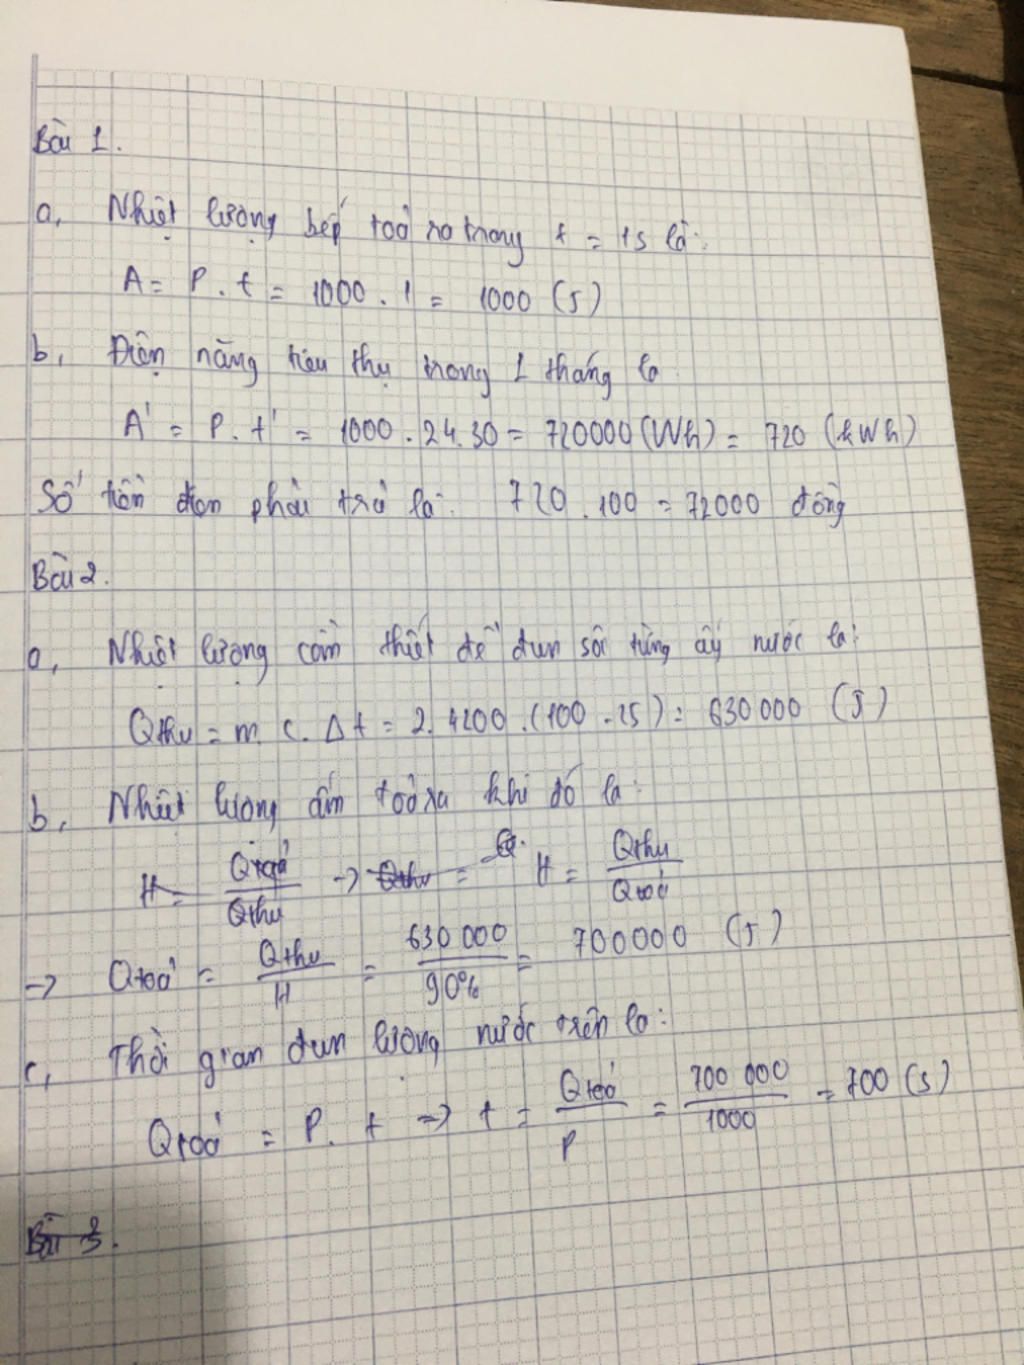 Bài 1.
a, Nhiệt lượng bếp toả ra trong t = 1s là:
A = P . t = 1000 . 1 = 1000 (J)
b, Điện năng tiêu thụ trong 1 tháng là
A' = P . t' = 1000 . 24 . 30 = 720000 (Wh) = 720 (kWh)
Số tiền điện phải trả là: 720 . 100 = 72000 đồng
Bài 2.
a, Nhiệt lượng cần thiết để đun sôi từng ấy nước là:
Qthu = m . c . Δt = 2 . 4200 . (100 - 25) = 630 000 (J)
b, Nhiệt lượng ấm toả ra khi đó là:
H = Qtoả / Qthu → Qthu = Q. H = Qthu / Qtoả
→ Qtoả = Qthu / H = 630 000 / 90% = 700000 (J)
c, Thời gian đun lượng nước trên là:
Qtoả = P . t → t = Qtoả / P = 700 000 / 1000 = 700 (s)
Bài 3.